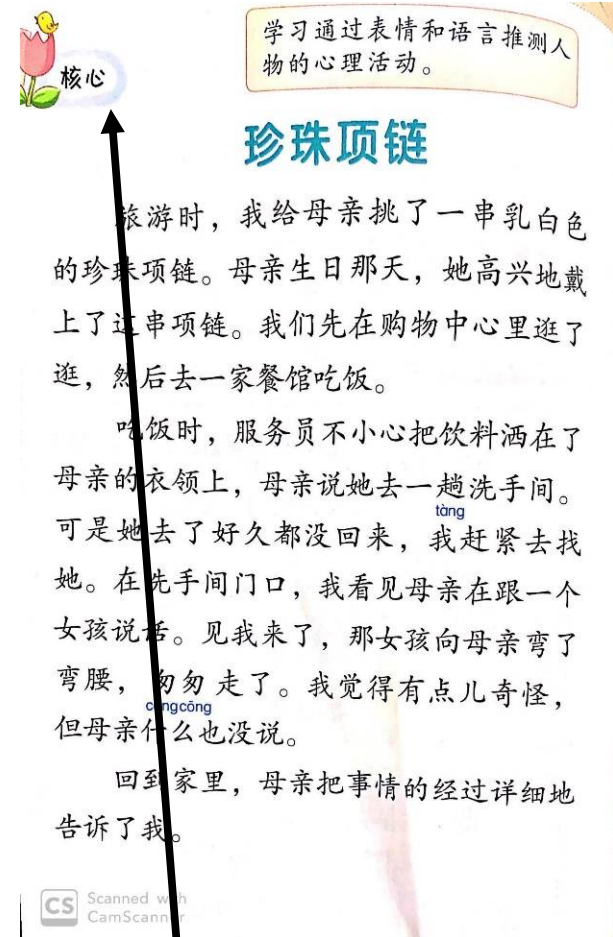 学习通过表情和语言推测人
物的心理活动。
核心
珍珠项链
旅游时，我给母亲挑了一串乳白色
的珍珠项链。母亲生日那天，她高兴地戴
上了这串项链。我们先在购物中心里逛了
逛，然后去一家餐馆吃饭。
吃饭时，服务员不小心把饮料洒在了
母亲的衣领上，母亲说她去一趟洗手间。
tàng
可是她去了好久都没回来，我赶紧去找
她。在洗手间门口，我看见母亲在跟一个
女孩说话。见我来了，那女孩向母亲弯了
弯腰，匆匆走了。我觉得有点儿奇怪，
cōngcōng
但母亲什么也没说。
回到家里，母亲把事情的经过详细地
告诉了我。
CS Scanned with
CamScanner